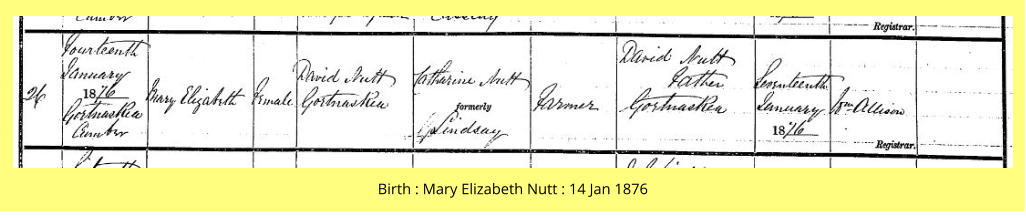 Cumber
Registrar.
26
Fourteenth
January
1876
Gortnaskea
Cumber
Mary Elizabeth
Female
David Nutt
Gortnaskea
Catharine Nutt
formerly
Lindsay
Farmer
David Nutt
Father
Gortnaskea
Seventeenth
January
1876
Wm Allison
Registrar.
Birth : Mary Elizabeth Nutt : 14 Jan 1876